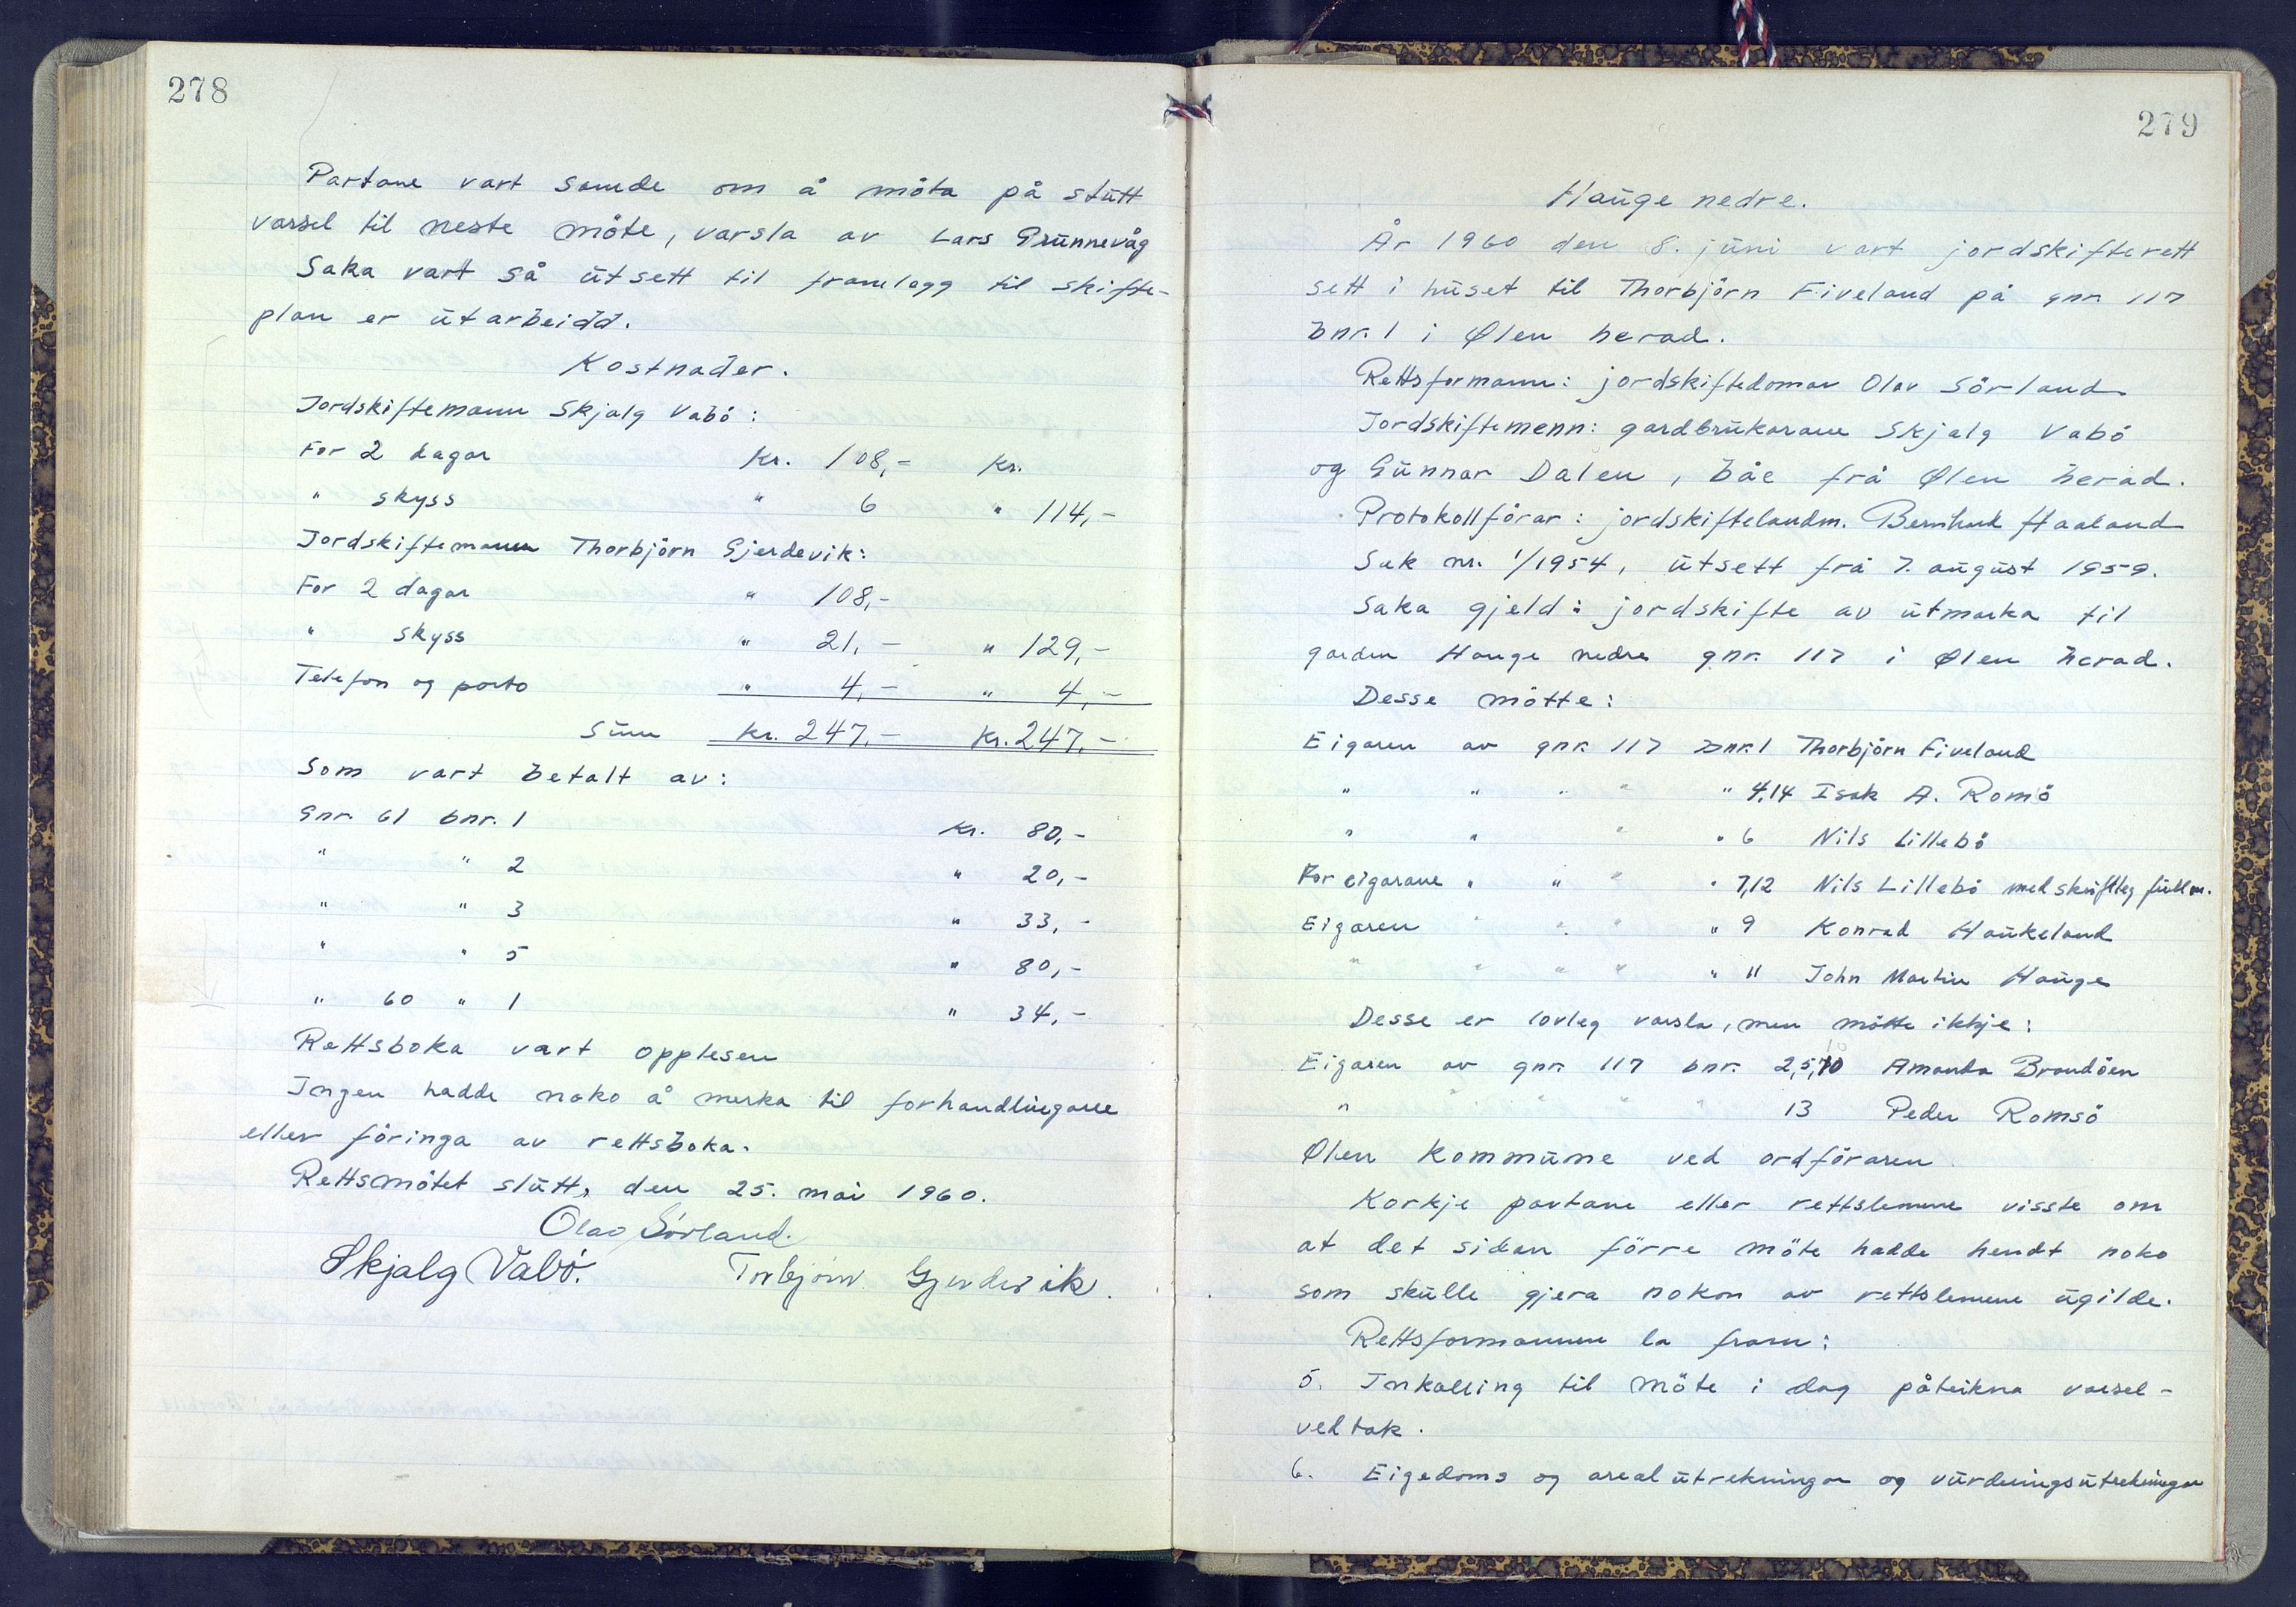 278
Partane vart samde om å möta på stutt
varsel til neste möte, varsla av Lars Grunnevåg
Saka vart så utsett til framlegg til skifte-
plan er utarbeidd.
Kostnader.
Jordskiftemann Skjalg Vabö:
For 2 dagar kr. 108,- kr.
" skyss " 6 " 114,-
Jordskiftemann Thorbjörn Gjerdevik:
For 2 dagar " 108,-
" skyss " 21,- " 129,-
Telefon og porto " 4,- " 4,-
Sum kr. 247,- kr. 247,-
Som vart betalt av:
Gnr. 61 bnr. 1 kr. 80,-
" " 2 " 20,-
" " 3 " 33,-
" " 5 " 80,-
" 60 " 1 " 34,-
Rettsboka vart opplesen
Ingen hadde noko å merka til forhandlingane
eller föringa av rettsboka.
Rettsmötet slutt, den 25. mai 1960.
Olav Sørland.
Skjalg Vabö. Torbjörn Gjerdevik.
279
Hauge nedre.
År 1960 den 8. juni vart jordskifterett
sett i huset til Thorbjörn Fiveland på gnr 117
bnr. 1 i Ølen herad.
Rettsformann: jordskiftedomar Olav Sörland
Jordskiftemenn: gardbrukarane Skjalg Vabö
og Gunnar Dalen, båe frå Ølen herad.
Protokollförar: jordskiftelandm. Bernhard Haaland
Sak nr. 1/1954, utsett frå 7. august 1959.
Saka gjeld: jordskifte av utmarka til
garden Hauge nedre gnr. 117 i Ølen herad.
Desse mötte:
Eigaren av gnr. 117 bnr. 1 Thorbjörn Fiveland
" " " " " 4,14 Isak A. Romsö
" " " " 6 Nils Lillebö
For eigarane " " " " 7,12 Nils Lillebö med skriftleg fullm.
Eigaren " " " 9 Konrad Haukeland
" " " " " 11 John Martin Hauge
Desse er lovleg varsla, men mötte ikkje:
Eigaren av gnr. 117 bnr. 2,5,10 Amanda Brandöen
" " " " " 13 Peder Romsö
Ølen kommune ved ordföraren
Korkje partane eller rettslemene visste om
at det sidan förre möte hadde hendt noko
som skulle gjera nokon av rettslemene ugilde.
Rettsformannen la fram:
5. Innkalling til möte i dag påteikna varsel-
vedtak.
6. Eigedoms og arealutrekningar og vurderingsutrekningar